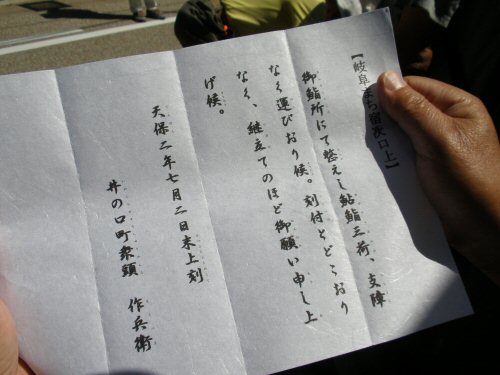 【岐阜まち宿次口上】
御鮨所にて整えし鮎鮨三荷、支障
なく運びおり候。刻付とどこおり
なく、継立てのほど御願い申し上
げ候。
天保二年七月二日未上刻
井の口町衆頭 作兵衛